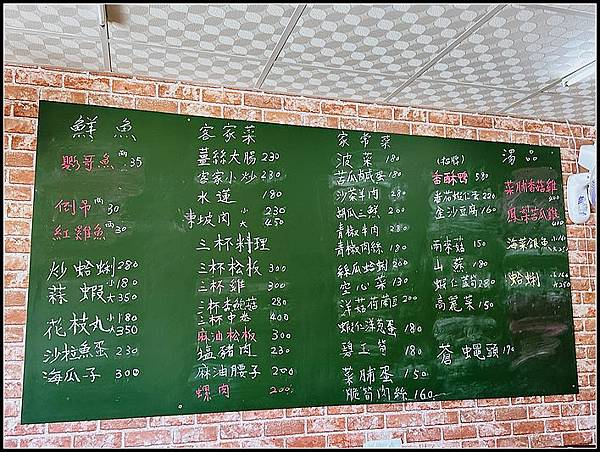 鮮魚
鸚哥魚 兩35
倒吊 兩30
紅雞魚 兩30
炒蛤蜊 280
蒜蝦 小180 大350
花枝丸 小180 大350
沙拉魚蛋 230
海瓜子 300
客家菜
薑絲大腸 230
客家小炒 230
水蓮 180
東坡肉 小230 大450
三杯料理
三杯松板 300
三杯雞 300
三杯杏鮑菇 280
三杯中卷 400
麻油松板 300
塩豬肉 230
麻油腰子 200
螺肉 200
家常菜
波菜 180
苦瓜鹹蛋 180
沙茶羊肉 280
胡瓜三鮮 200
青椒牛肉 280
青椒肉絲 180
絲瓜蛤蜊 200
空心菜 130
洋菇荷蘭豆 200
蝦仁洋蔥蛋 180
碧玉筍 180
菜脯蛋 150
脆筍肉絲 160
(招牌)
香酥鴨 580
番茄蝦仁蛋 220
金沙豆腐 160
南瓜菇 150
山蘇 180
蝦仁 280
高麗菜 150
蒼蠅頭 190
湯品
菜脯香菇雞
鳳梨苦瓜雞
海菜銀魚
蛤蜊